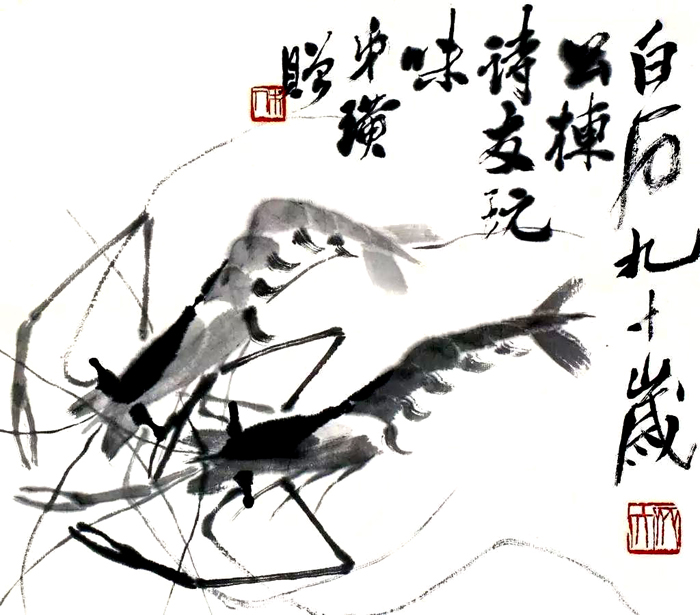 白石九十歲
公棟
詩友玩
味
東璜
贈